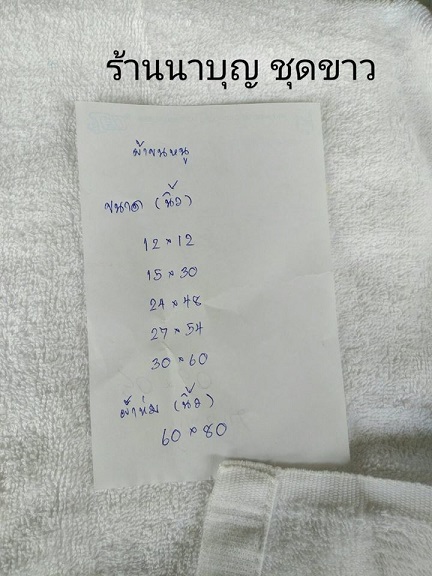 ร้านนาบุญ ชุดขาว
ผ้าขนหนู
ขนาด (นิ้ว)
12 × 12
15 × 30
24 × 48
27 × 54
30 × 60
ผ้าห่ม (นิ้ว)
60 × 80